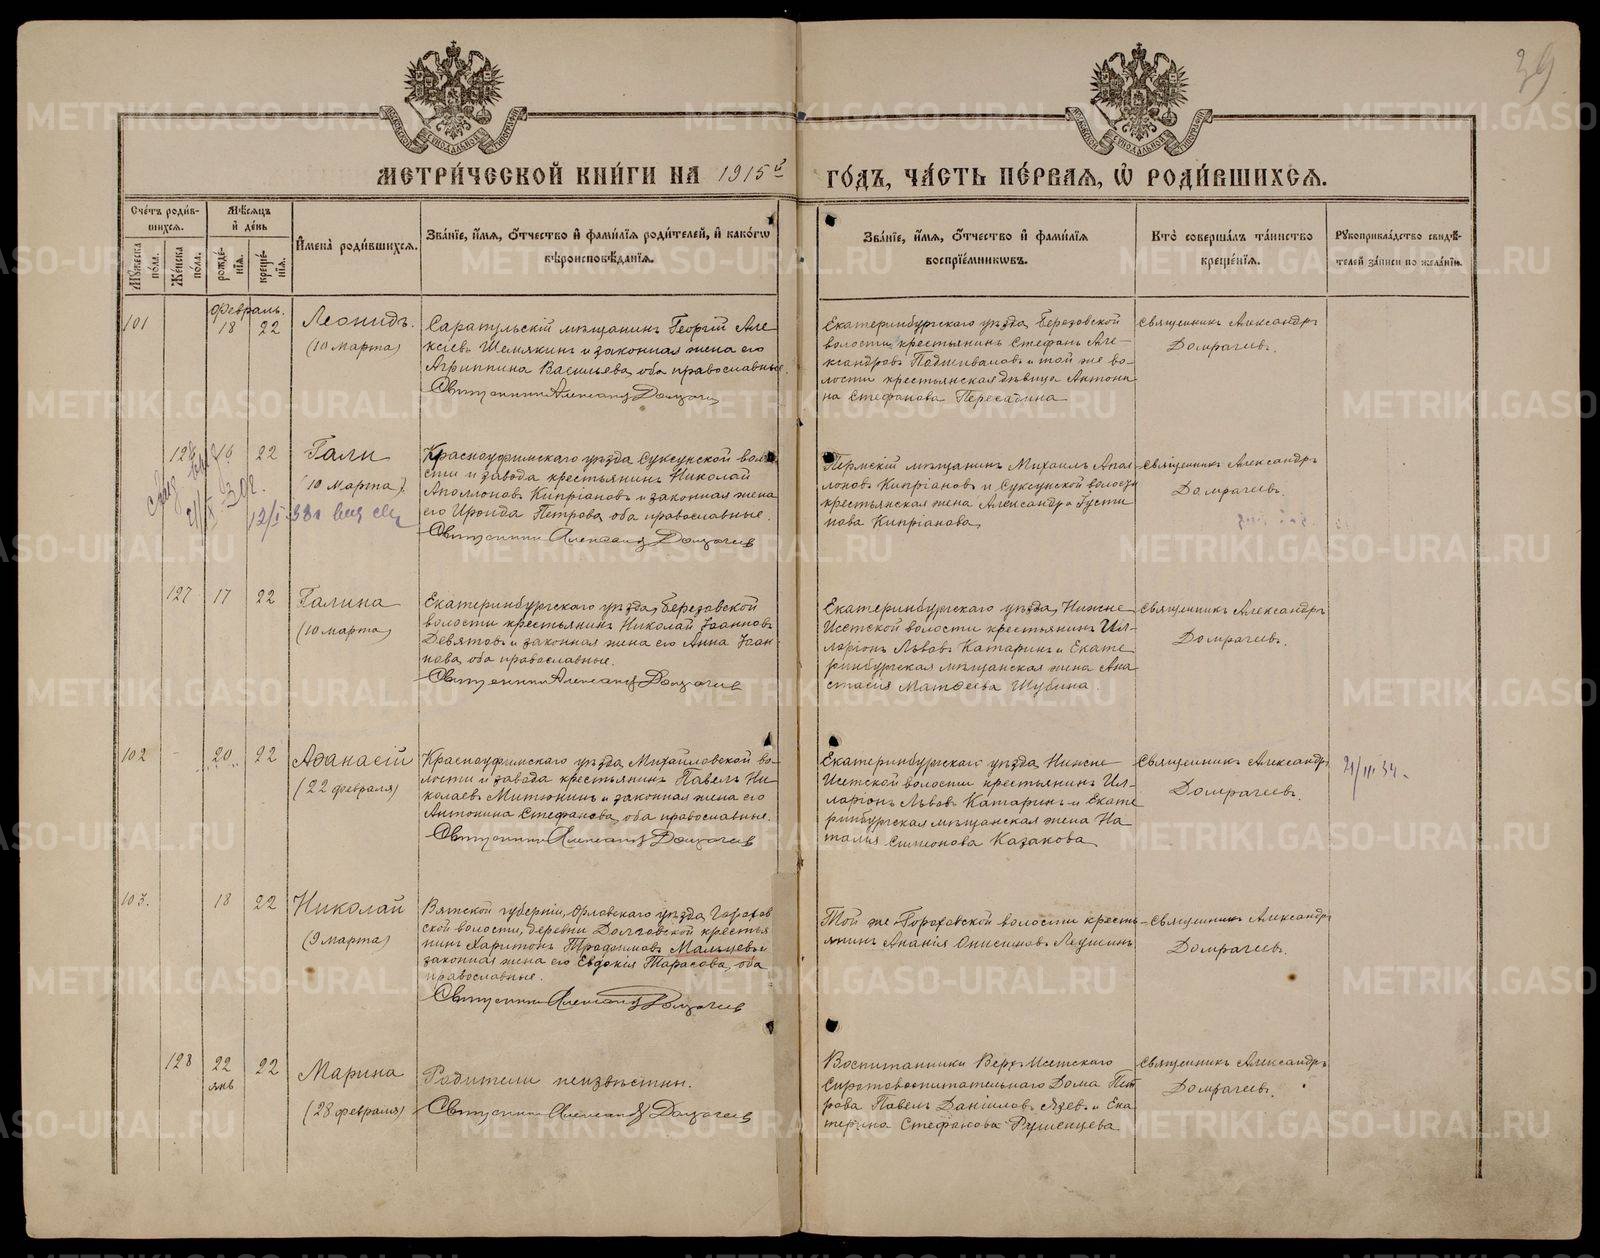 39
МЕТРИ́ЧЕСКОЙ КНИ́ГИ НА 1915й ГО́ДЪ, ЧА́СТЬ ПЕ́РВАЯ, Ѡ РОДИ́ВШИХСЯ.
Сче́тъ роди́в-
шихся.
Мѣ́сяцъ
и де́нь
Му́жеска по́ла.
Же́нска по́ла.
рожде́-
нїя.
креще́-
нїя.
Имена̀ роди́вшихся.
Зва́нїе, и́мя, о́тчество и фами́лїя роди́телей, и како́гѡ
вѣроисповѣ́данїя.
Зва́нїе, и́мя, о́тчество и фами́лїя
воспрїе́мникѡвъ.
Кто̀ соверша́лъ та́инство
креще́нїя.
Рукоприкла́дство свидѣ́-
телей за́писи по жела́нїю.
Февраль.
101
18
22
Леонидъ.
(10 марта)
Сарапульскій мѣщанинъ Георгій Але
ксѣевъ Шемякинъ и законная жена его
Агриппина Васильева, оба православные.
Священникъ Александръ Домрачевъ
Екатеринбургскаго уѣзда, Березовской
волости, крестьянинъ Стефанъ Але-
ксандровъ Подшиваловъ и той же во-
лости крестьянская дѣвица Антони
на Стефанова Пересадина
Священникъ Александръ
Домрачевъ.
126
16
22
Гали
(10 марта).
12/I-38г выд сви
Красноуфимскаго уѣзда Суксунской воло-
сти и завода крестьянинъ Николай
Аполлоновъ Кипріановъ и законная жена
его Ироида Петрова, оба православные.
Священникъ Александръ Домрачевъ
Пермскій мѣщанинъ Михаилъ Апол
лоновъ Кипріановъ и Суксунской волости
крестьянская жена Александра Густи
нова Кипріанова
Священникъ Александръ
Домрачевъ.
127
17
22
Галина
(10 марта)
Екатеринбургскаго уѣзда, Березовской
волости крестьянинъ Николай Іоанновъ
Девятовъ и законная жена его Анна Іоан-
нова, оба православные.
Священникъ Александръ Домрачевъ
Екатеринбургскаго уѣзда, Нижне
Исетской волости крестьянинъ Ил-
ларіонъ Львовъ Катаринъ и Екате
ринбургская мѣщанская жена Ана
стасія Матѳеева Шубина.
Священникъ Александръ
Домрачевъ.
102
20
22
Аѳанасій
(22 февраля)
Красноуфимскаго уѣзда, Михайловской во-
лости и завода крестьянинъ Павелъ Ни-
колаевъ Митюнинъ и законная жена его
Антонина Стефанова, оба православные.
Священникъ Александръ Домрачевъ
Екатеринбургскаго уѣзда Нижне
Исетской волости крестьянинъ Ил-
ларіонъ Львовъ Катаринъ и Екате
ринбургская мѣщанская жена На
талья Симеонова Казакова
Священникъ Александръ
Домрачевъ.
21/III 34.
103.
18
22
Николай
(9 марта)
Вятской губерніи, Орловскаго уѣзда, Гороховской
волости, деревни Долговской крестья
нинъ Харитонъ Трофимовъ Мальцевъ и
законная жена его Евдокія Тарасова, оба
православные.
Священникъ Александръ Домрачевъ
Той же Гороховской волости кресть-
янинъ Ананія Онисимовъ Леушинъ
Священникъ Александръ
Домрачевъ.
128
22
янв
22
Марина
(28 февраля)
Родители неизвѣстны.
Священникъ Александръ Домрачевъ
Воспитанники Верх-Исетскаго
Сиротовоспитательнаго Дома Пет
рова Павелъ Даніиловъ Язевъ и Ека
терина Стефанова Румянцева
Священникъ Александръ
Домрачевъ.
METRIKI.GASO-URAL.RU